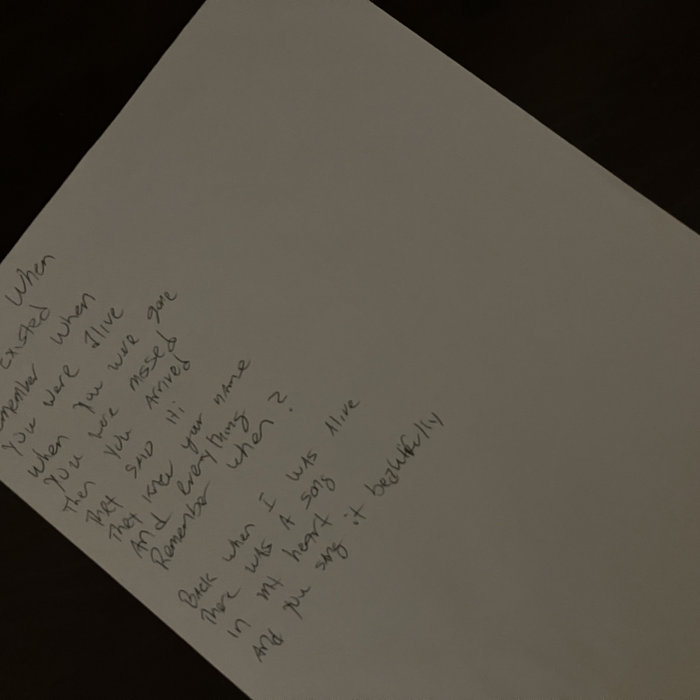 When
Existed
When
you were Alive
when you were gone
you were missed
Then you Arrived
They said Hi
They knew your name
And everything
Remember when?
Back when I was Alive
There was A song
in my heart
And you sang it beautifully